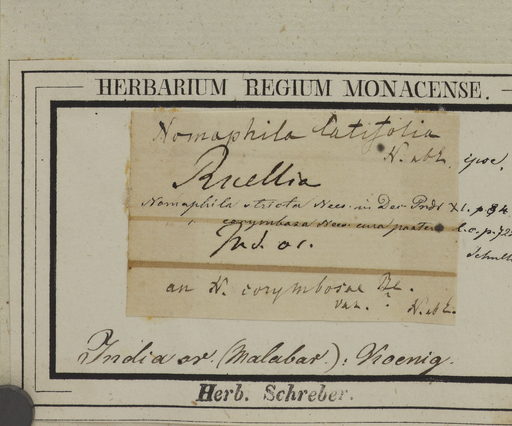 HERBARIUM REGIUM MONACENSE.
Nomaphila latifolia
N. ab E. ipse.
Ruellia
Nomaphila stricta Nees. in Dec. Prdr. XI. p. 84
corymbosa Nees. l.c. p.
Ind. or.
an N. corymbosae Bl.
var. ? N. ab E.
India or. (Malabar): Koenig.
Herb. Schreber.